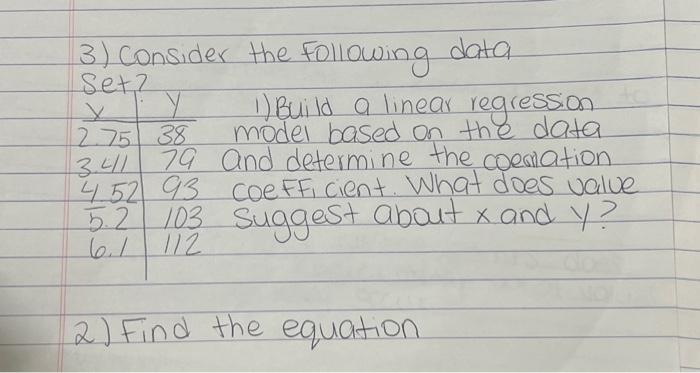 3) Consider the following data
Set?
x y 1) Build a linear regression
2.75 38 model based on the data
3.41 79 and determine the correlation
4.52 93 coefficient. What does value
5.2 103 suggest about x and y?
6.1 112
2) Find the equation